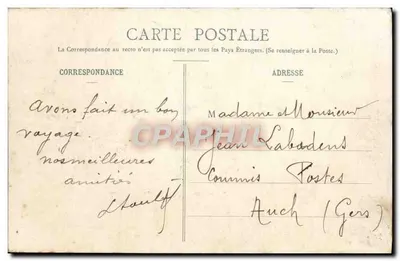 CARTE POSTALE
La Correspondance au verso n'est pas acceptée par tous les Pays Étrangers. (Se renseigner à la Poste.)
CORRESPONDANCE
ADRESSE
Avons fait un bon
voyage.
nos meilleures
amitiés
Madame et Monsieur
Jean Labadens
Commis Postes
Auch (Gers)
CPAPHIL